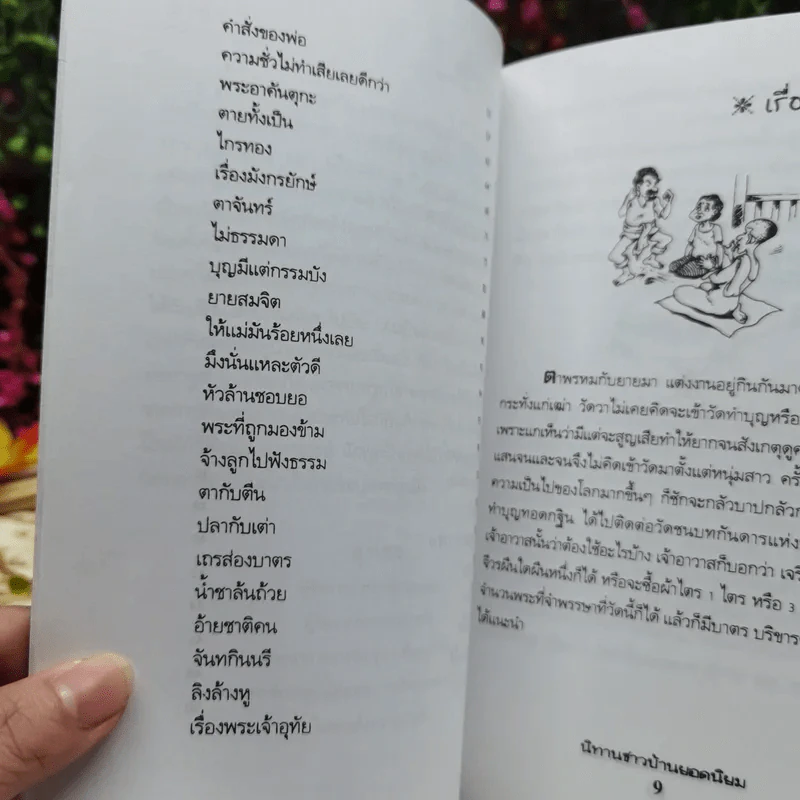 คำสั่งของพ่อ
ความชั่วไม่ทำเสียเลยดีกว่า
พระอาคันตุกะ
ตายทั้งเป็น
ไกรทอง
เรื่องมังกรยักษ์
ตาจันทร์
ไม่ธรรมดา
บุญมีแต่กรรมบัง
ยายสมจิต
ให้แม่มันร้อยหนึ่งเลย
มึงนั่นแหละตัวดี
หัวล้านชอบยอ
พระที่ถูกมองข้าม
จ้างลูกไปฟังธรรม
ตากับตีน
ปลากับเต่า
เถรส่องบาตร
น้ำชาล้นถ้วย
อ้ายชาติคน
จันทกินนรี
ลิงล้างหู
เรื่องพระเจ้าอุทัย
ตาพรหมกับยายมา แต่งงานอยู่กินกันมา
กระทั่งแก่เฒ่า วัดวาไม่เคยคิดจะเข้าวัดทำบุญหรือ
เพราะแกเห็นว่ามีแต่จะสูญเสียทำให้ยากจนสังเกตุดู
แสนจนและจนจึงไม่คิดเข้าวัดมาตั้งแต่หนุ่มสาว
ความเป็นไปของโลกมากขึ้นๆ ก็ชักจะกลัวบาปกลัว
ทำบุญทอดกฐิน ได้ไปติดต่อวัดชนบทกันดารแห่ง
เจ้าอาวาสนั้นว่าต้องใช้อะไรบ้าง เจ้าอาวาสก็บอกว่า
จีวรผืนใดผืนหนึ่งก็ได้ หรือจะซื้อผ้าไตร 1 ไตร หรือ 3
จำนวนพระที่จำพรรษาที่วัดนี้ก็ได้ แล้วก็มีบาตร บริขาร
ได้แนะนำ
นิทานชาวบ้านยอดนิยม
9